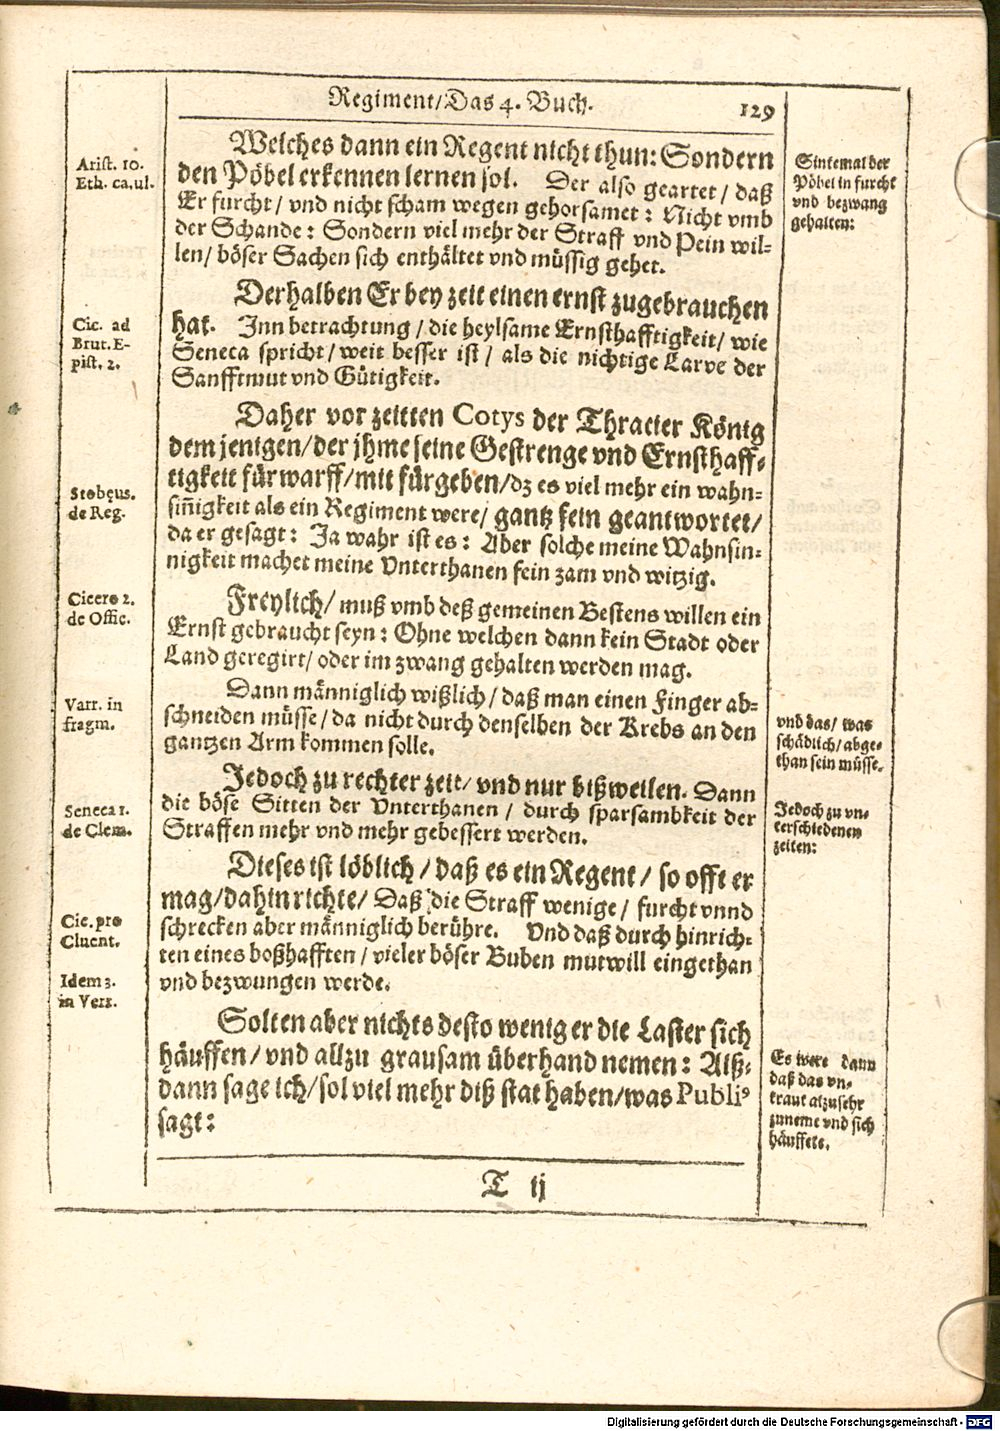 Regiment/Das 4. Buch. 129
Welches dann ein Regent nicht thun: Sondern
den Pöbel erkennen lernen sol. Der also geartet/ daß
Er furcht/ vnd nicht scham wegen gehorsamet: Nicht vmb
der Schande: Sondern viel mehr der Straff vnd Pein wil-
len/ böser Sachen sich enthältet vnd müssig gehet.
Arist. 10.
Eth. ca. ul.
Sintemal der
Pöbel in furcht
vnd bezwang
gehalten:
Derhalben Er bey zeit einen ernst zugebrauchen
hat. Inn betrachtung/ die heylsame Ernsthafftigkeit/ wie
Seneca spricht/ weit besser ist/ als die nichtige Larve der
Sanfftmut vnd Gütigkeit.
Cic. ad
Brut. E-
pist. 2.
Daher vor zeitten Cotys der Thracier König
dem jenigen/ der jhme seine Gestrenge vnd Ernsthaff-
tigkeit fürwarff/ mit fürgeben/ dz es viel mehr ein wahn-
siñigkeit als ein Regiment were/ gantz fein geantwortet/
da er gesagt: Ja wahr ist es: Aber solche meine Wahnsin-
nigkeit machet meine Vnterthanen fein zam vnd witzig.
Stobęus.
de Reg.
Freylich/ muß vmb deß gemeinen Bestens willen ein
Ernst gebraucht seyn: Ohne welchen dann kein Stadt oder
Land geregirt/ oder im zwang gehalten werden mag.
Cicero 2.
de Offic.
Dann männiglich wißlich/ daß man einen Finger ab-
schneiden müsse/ da nicht durch denselben der Krebs an den
gantzen Arm kommen solle.
Varr. in
fragm.
vnd das/ was
schädlich/ abge-
than sein müsse.
Jedoch zu rechter zeit/ vnd nur bißweilen. Dann
die böse Sitten der Vnterthanen/ durch sparsambkeit der
Straffen mehr vnd mehr gebessert werden.
Seneca 1.
de Clem.
Jedoch zu vn-
terschiedenen
zeiten:
Dieses ist löblich/ daß es ein Regent/ so offt er
mag/ dahin richte/ Daß die Straff wenige/ furcht vnnd
schrecken aber männiglich berühre. Vnd daß durch hinrich-
ten eines boßhafften/ vieler böser Buben mutwill eingethan
vnd bezwungen werde.
Cic. pro
Cluent.
Idem 3.
in Verr.
Solten aber nichts desto weniger die Laster sich
häuffen/ vnd allzu grausam überhand nemen: Alß-
dann sage ich/ sol viel mehr diß stat haben/ was Publiꝰ
sagt:
Es were dann
daß das vn-
kraut alzusehr
zuneme vnd sich
häuffete.
T ij
Digitalisierung gefördert durch die Deutsche Forschungsgemeinschaft - DFG